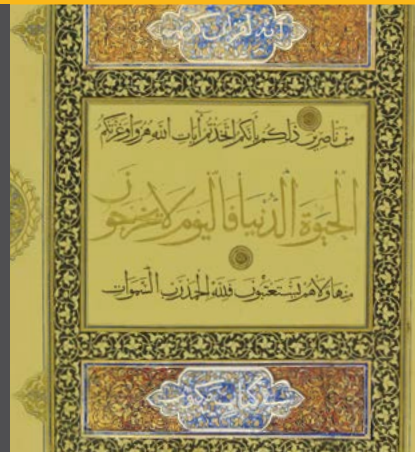 انه لقرآن كريم
من ناصرين ذلكم بانكم اتخذتم آيات الله هزوا وغرتكم
الحيوة الدنيا فاليوم لا يخرجون
منها ولا هم يستعتبون فلله الحمد رب السموات
في كتاب مكنون